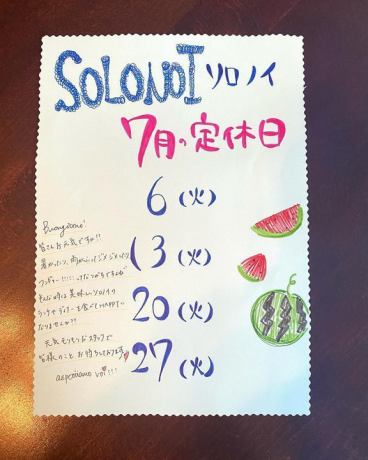 SOLONOI ソロノイ
7月の定休日
6 (火)
13 (火)
20 (火)
27 (火)
Buongiorno!
皆さんお元気ですか!!
暑かったり、雨がふってジメジメ
そんな時は美味しいソロノイの
ランチやディナーを食べてHAPPYに
なりませんか??
元気モリモリなスタッフで
皆様のことお待ちしております
aspettiamo voi!!!